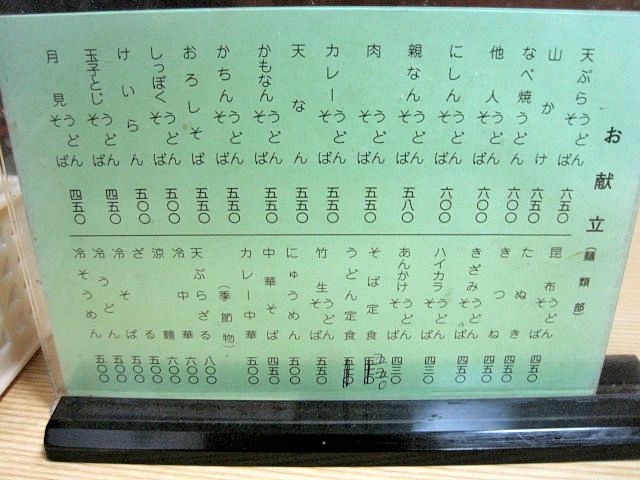 お献立（麺類部）
天ぷらそばうどん 六五〇
山かけ 六五〇
なべ焼うどん 六〇〇
他人そばうどん 六〇〇
にしんそばうどん 六〇〇
親なんそばうどん 五八〇
肉そばうどん 五五〇
カレーそばうどん 五五〇
天なん 五五〇
かもなんそばうどん 五五〇
かちんそばうどん 五五〇
おろしそば 五五〇
しっぽくそばうどん 五〇〇
けいらん 五〇〇
玉子とじそばうどん 四五〇
月見そばうどん 四五〇
昆布そばうどん 四五〇
たぬき 四五〇
きつね 四五〇
きざみそばうどん 四五〇
ハイカラそばうどん 四三〇
あんかけそばうどん 四三〇
そば定食 550
うどん定食
竹生そばうどん 五五〇
にゅうめん 五〇〇
中華そば 四五〇
カレー中華 五〇〇
（季節物）
天ぷらざる 八〇〇
冷中華 六〇〇
涼麺 六〇〇
ざる 五〇〇
冷そば 五〇〇
冷うどん 五〇〇
冷そうめん 五〇〇